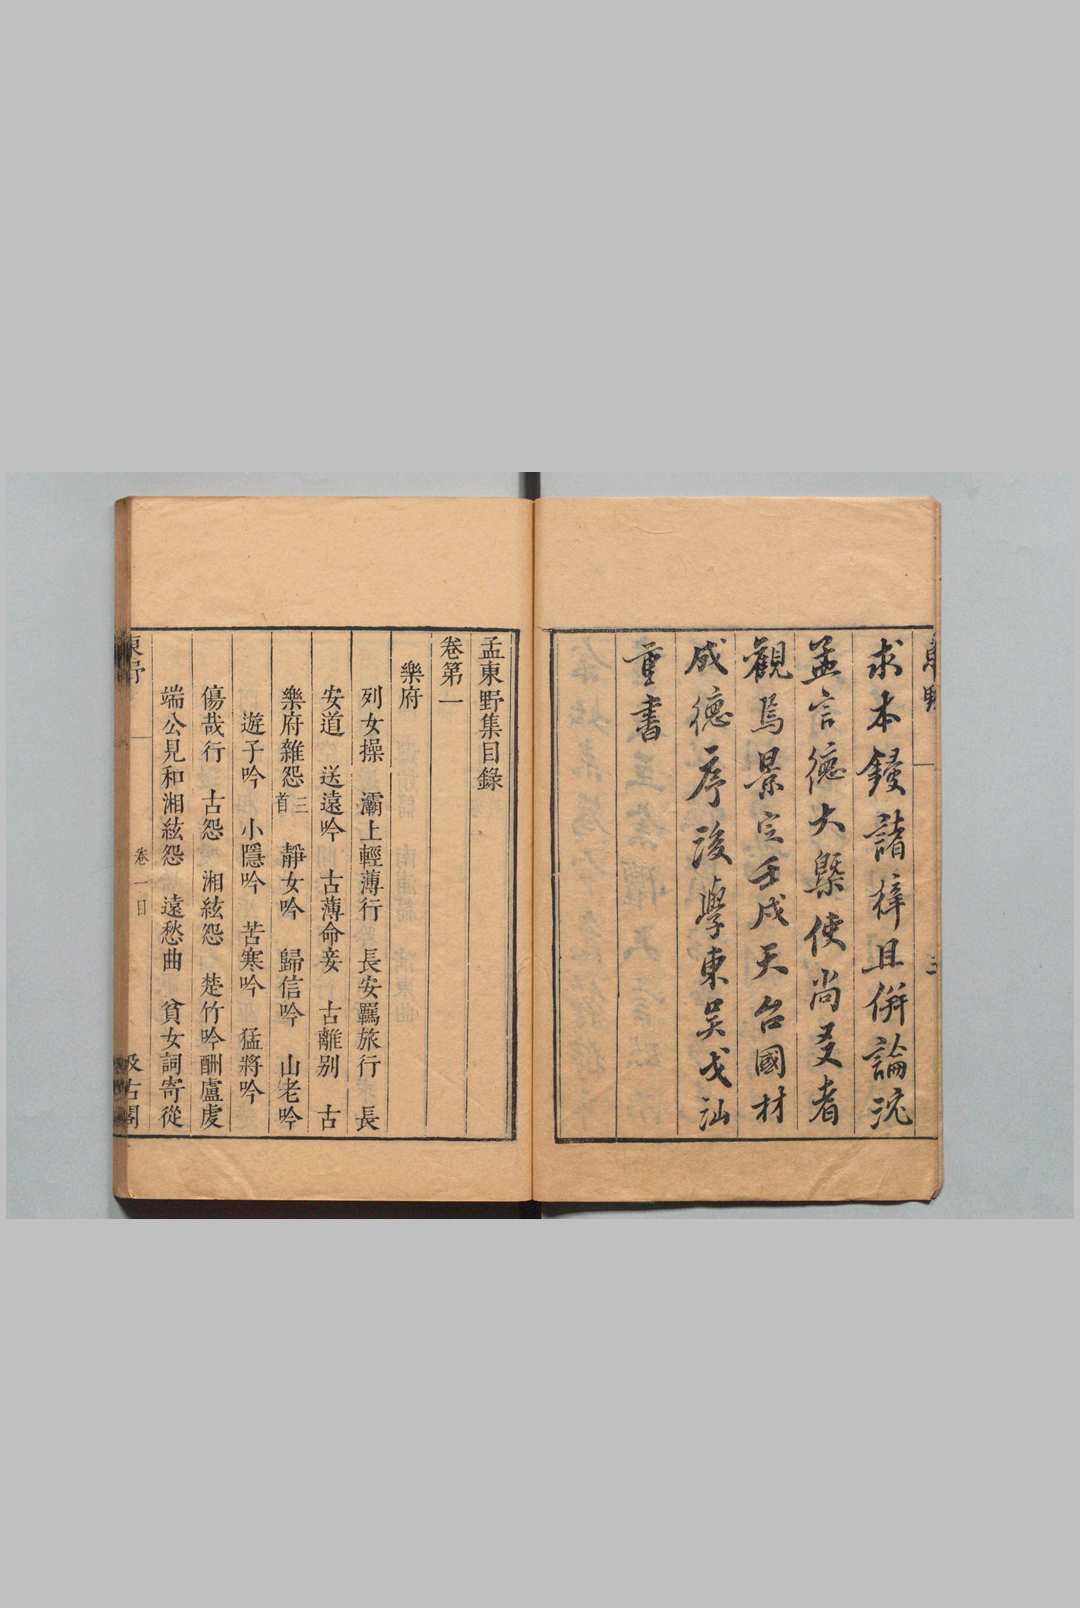 求本鋟諸梓且併論沇
孟言德大槩使尚友者
觀焉景定壬戌天台國材
成德序後學東吳戈汕
重書
孟東野集目錄
卷第一
樂府
列女操 灞上輕薄行 長安羈旅行 長
安道 送遠吟 古薄命妾 古離别 古
樂府雜怨三首 靜女吟 歸信吟 山老吟
遊子吟 小隱吟 苦寒吟 猛將吟
傷哉行 古怨 湘絃怨 楚竹吟酬盧虔
端公見和湘絃怨 遠愁曲 貧女詞寄從
東野
卷一目
汲古閣